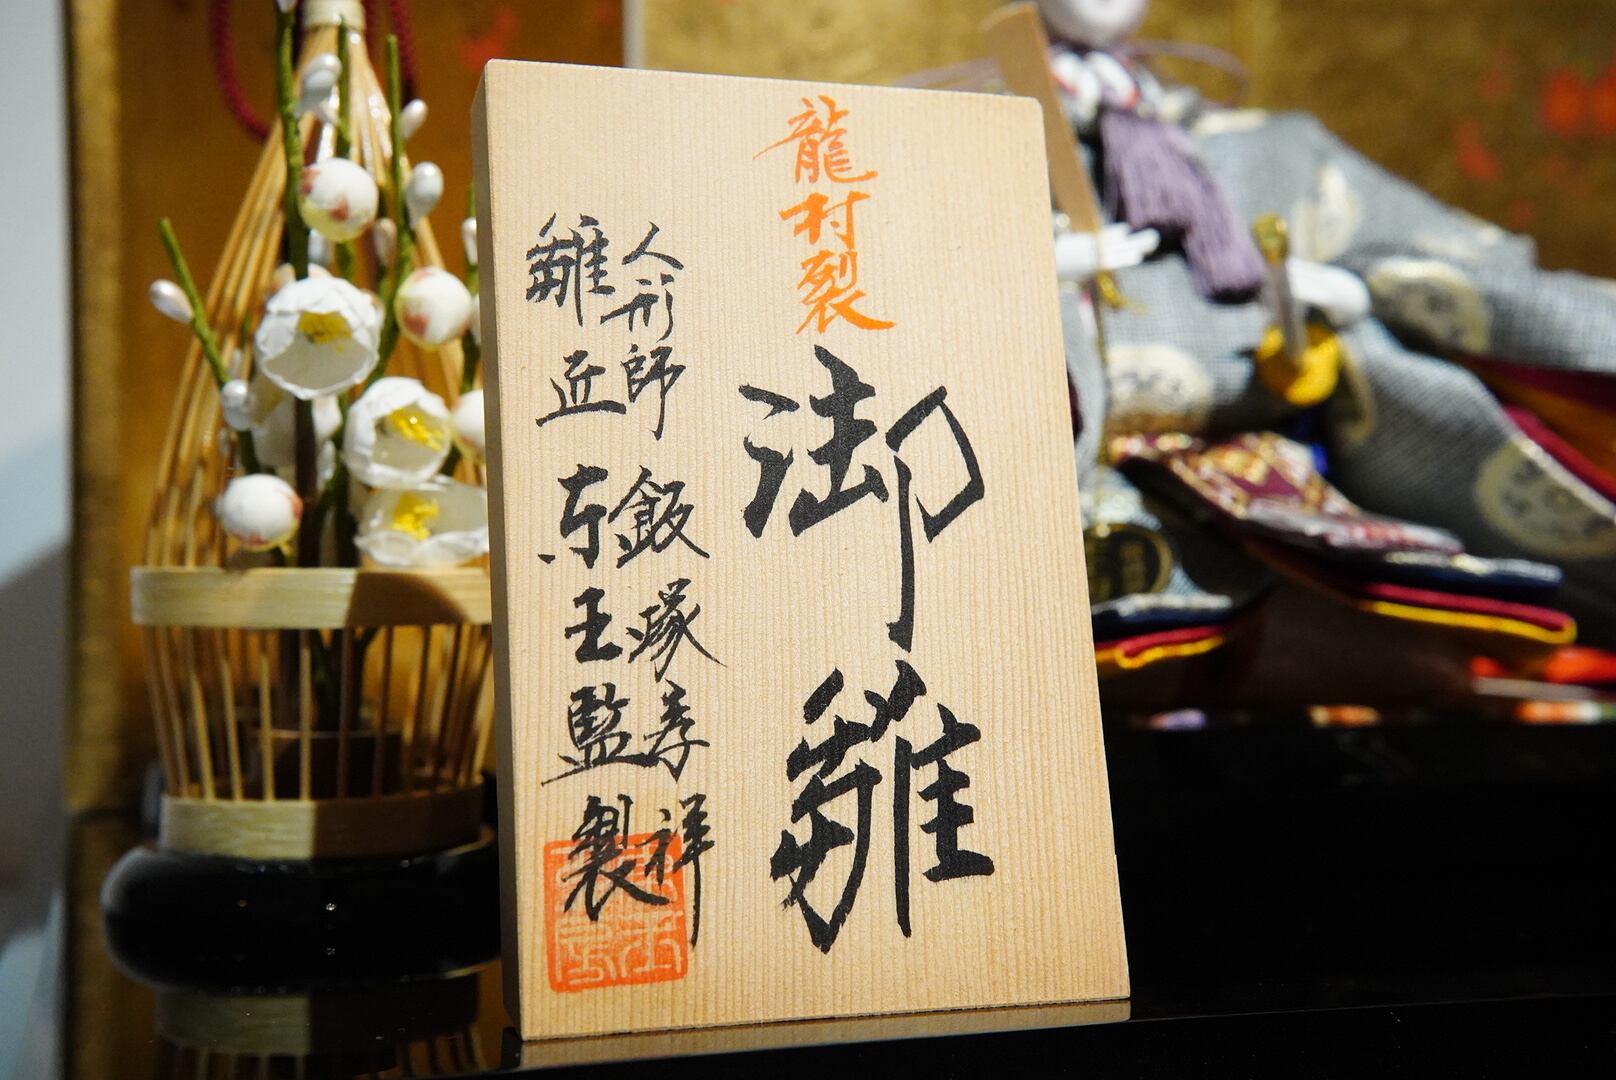 龍村裂
御雛
人形師 飯塚孝祥
雛匠 東玉監製